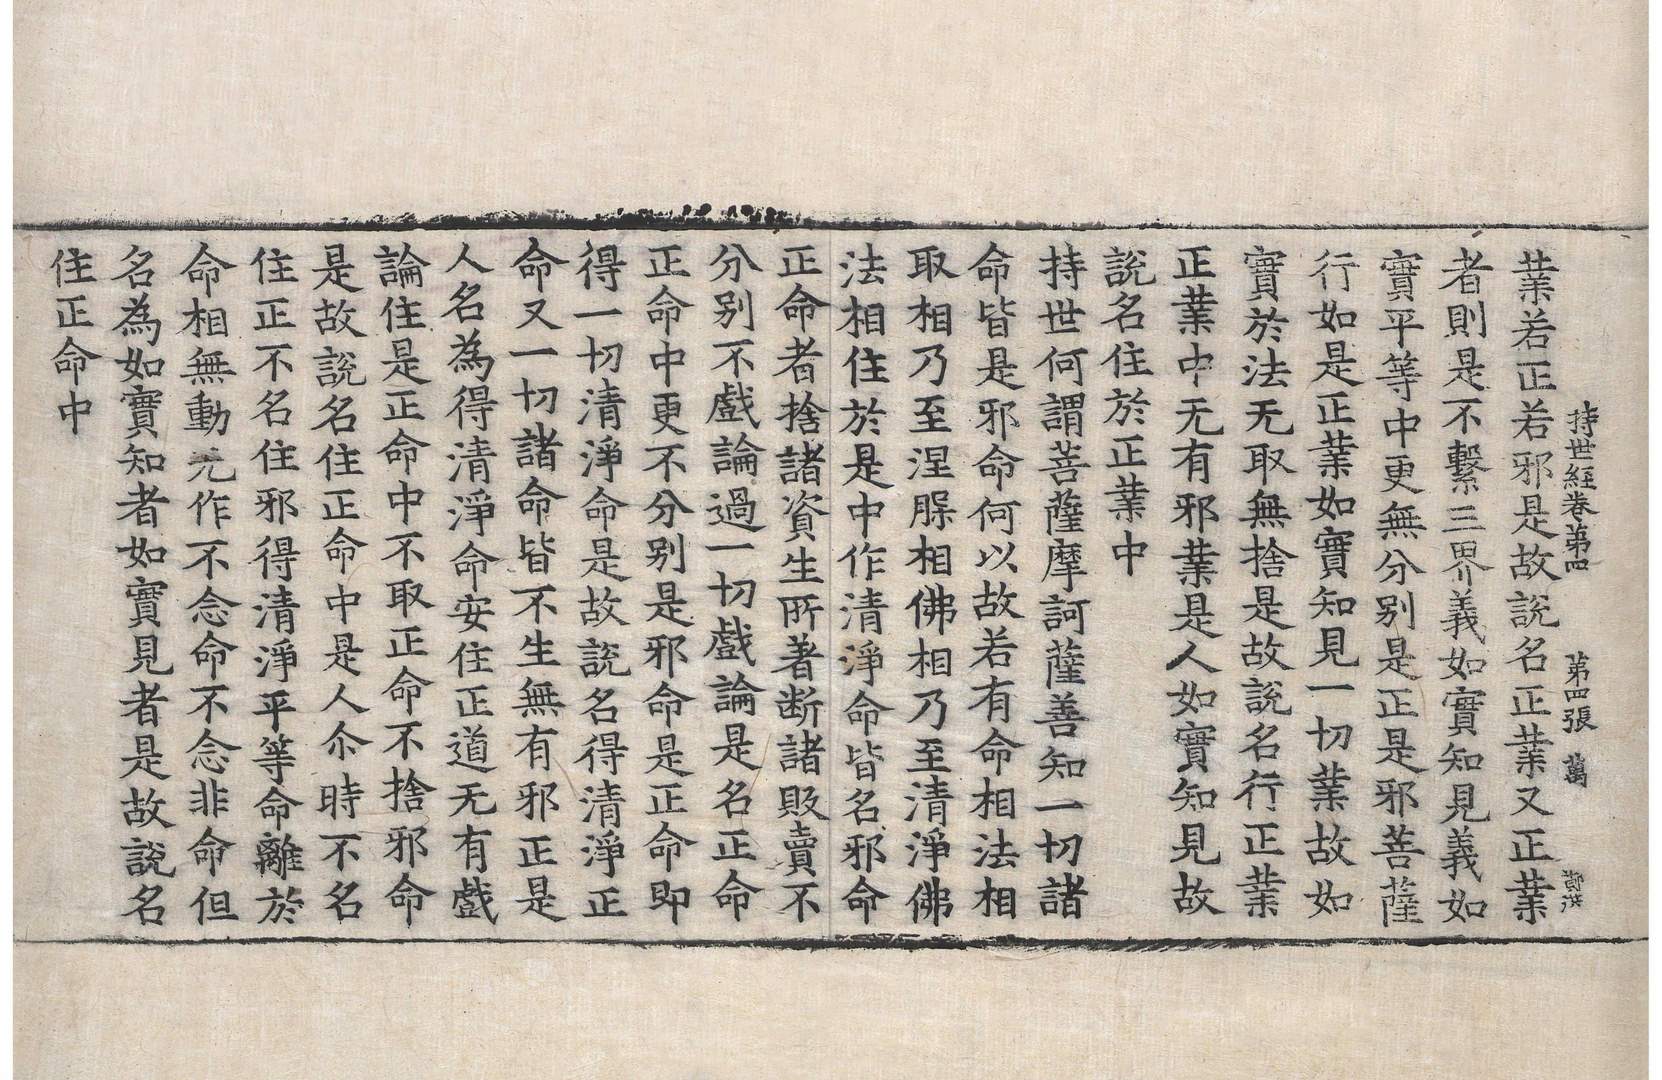 持世経卷第四 第四張 萬
業若正若邪是故說名正業又正業
者則是不繫三界義如實知見義如
實平等中更無分别是正是邪菩薩
行如是正業如實知見一切業故如
實於法无取無捨是故說名行正業
正業中无有邪業是人如實知見故
說名住於正業中
持世何謂菩薩摩訶薩善知一切諸
命皆是邪命何以故若有命相法相
取相乃至涅槃相佛相乃至清淨佛
法相住於是中作清淨命皆名邪命
正命者捨諸資生所著断諸敗賣不
分别不戲論過一切戲論是名正命
正命中更不分别是邪命是正命即
得一切清淨命是故說名得清淨正
命又一切諸命皆不生無有邪正是
人名為得清淨命安住正道无有戲
論住是正命中不取正命不捨邪命
是故說名住正命中是人尒時不名
住正不名住邪得清淨平等命離於
命相無動无作不念命不念非命但
名為如實知者如實見者是故說名
住正命中